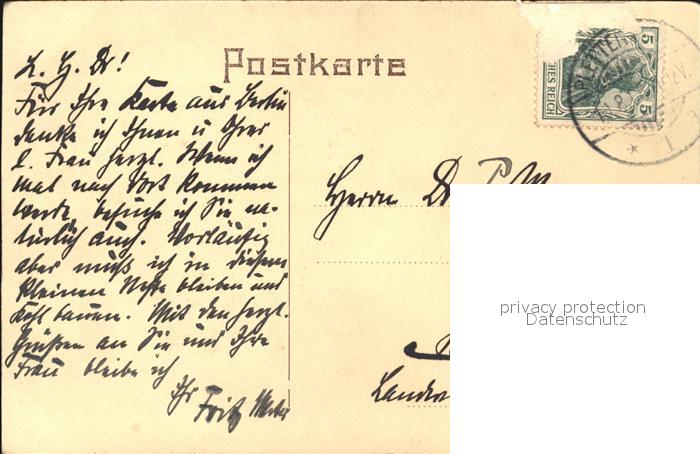 Postkarte
L. H. Dr!
Für Ihre Karte aus Berlin
danke ich Ihnen u Ihrer
l. Frau herzl. Wenn ich
mal nach dort kommen
werde, besuche ich Sie na-
türlich auch. Vorläufig
aber muß ich in diesem
kleinen Neste bleiben und
Kohl bauen. Mit den herzl.
Grüßen an Sie und Ihre
Frau bleibe ich
Ihr Fritz
PLETTEN
5
5
HES REICH
Herrn Dr
privacy protection
Datenschutz